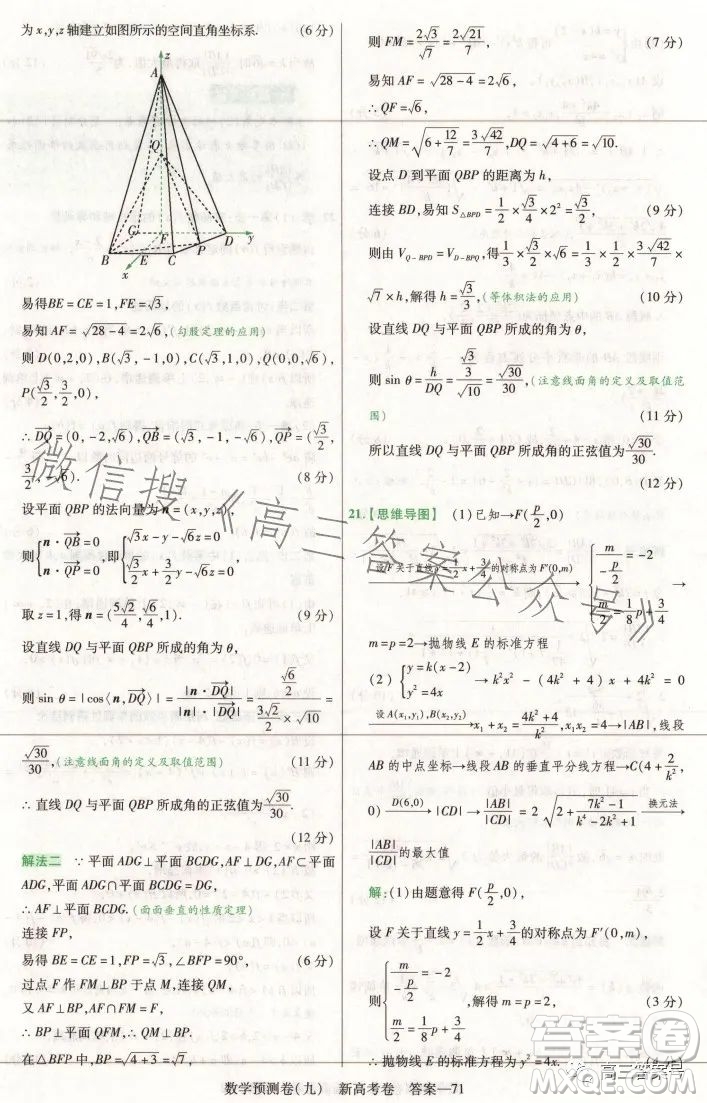 为x,y,z轴建立如图所示的空间直角坐标系. (6分)
z
A
Q
G
F
D
y
B
E
C
P
x
易得BE=CE=1,FE=√3,
易知AF=√(28-4)=2√6,(勾股定理的应用)
则D(0,2,0),B(√3,-1,0),C(√3,1,0),Q(0,0,√6),
P(√3/2,3/2,0),
∴DQ→=(0,-2,√6),QB→=(√3,-1,-√6),QP→=(√3/2,
3/2,-√6). (8分)
设平面QBP的法向量为n=(x,y,z),
则{n·QB→=0 n·QP→=0,即{√3x-y-√6z=0 √3/2x+3/2y-√6z=0,
取z=1,得n=(5√2/4,√6/4,1). (9分)
设直线DQ与平面QBP所成的角为θ,
则sin θ=|cos⟨n,DQ→⟩|=|n·DQ→|/|n||DQ→|=(√6/2)/(3√2/2×√10)=
√30/30,(注意线面角的定义及取值范围) (11分)
∴直线DQ与平面QBP所成角的正弦值为√30/30.
(12分)
解法二 ∵平面ADG⊥平面BCDG,AF⊥DG,AF⊂平面
ADG,平面ADG∩平面BCDG=DG,
∴AF⊥平面BCDG.(面面垂直的性质定理)
连接FP,
易得BE=CE=1,FP=√3,∠BFP=90°, (6分)
过点F作FM⊥BP于点M,连接QM,
又AF⊥BP,AF∩FM=F,
∴BP⊥平面QFM,∴QM⊥BP.
在△BFP中,BP=√(4+3)=√7,
则FM=2√3/√7=2√21/7, (7分)
易知AF=√(28-4)=2√6,
∴QF=√6,
∴QM=√(6+12/7)=3√42/7,DQ=√(4+6)=√10.
设点D到平面QBP的距离为h,
连接BD,易知S△BPD=1/2×√3/4×2²=√3/2, (9分)
则由V Q-BPD=V D-BPQ,得1/3×√3/2×√6=1/3×1/2×3√42/7×
√7×h,解得h=√3/3,(等体积法的应用) (10分)
设直线DQ与平面QBP所成的角为θ,
则sin θ=h/DQ=(√3/3)/√10=√30/30,(注意线面角的定义及取值范
围) (11分)
所以直线DQ与平面QBP所成角的正弦值为√30/30.
(12分)
21.【思维导图】 (1)已知→F(p/2,0)
设F关于直线y=1/2x+3/4的对称点为F′(0,m)→{m/(-p/2)=-2 m/2=1/8p+3/4→
m=p=2→抛物线E的标准方程
(2){y=k(x-2) y²=4x→k²x²-(4k²+4)x+4k²=0
设A(x₁,y₁),B(x₂,y₂)→x₁+x₂=(4k²+4)/k²,x₁x₂=4→|AB|,线段
AB的中点坐标→线段AB的垂直平分线方程→C(4+2/k²,
0)D(6,0)→|CD|→|AB|/|CD|=2√(2+(7k²-1)/(k⁴-2k²+2))换元法→
|AB|/|CD|的最大值
解:(1)由题意得F(p/2,0),
设F关于直线y=1/2x+3/4的对称点为F′(0,m),
则{m/(-p/2)=-2 m/2=1/8p+3/4,解得m=p=2, (3分)
∴抛物线E的标准方程为y²=4x.
数学预测卷(九) 新高考卷 答案—71
微信搜《高三答案公众号》
答案卷
高三答案号